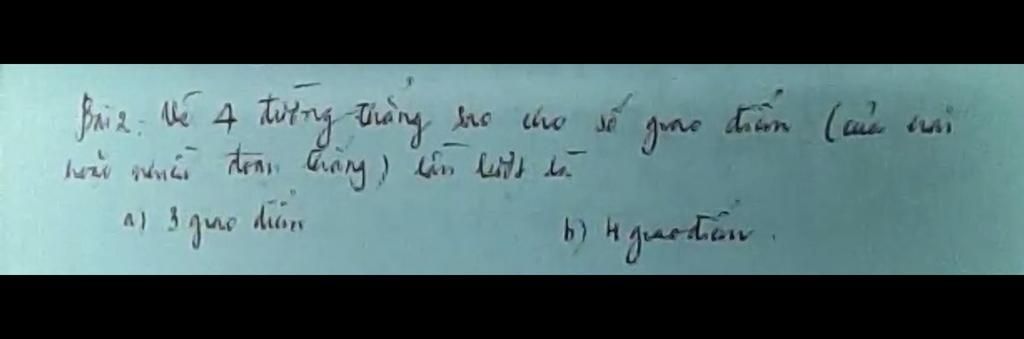 Bài 2: Vẽ 4 đường thẳng sao cho số giao điểm (của hai
hoặc nhiều đoạn thẳng) lần lượt là
a) 3 giao điểm b) 4 giao điểm.